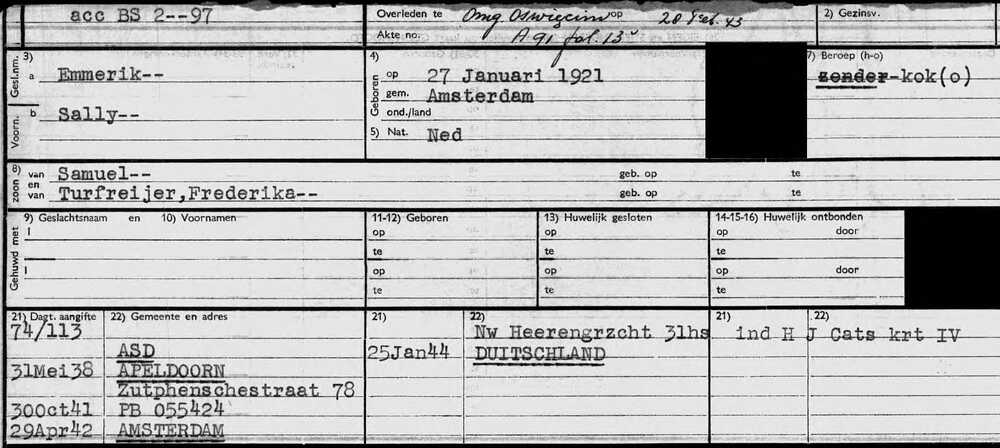 acc BS 2--97
Overleden te Omg Oswiecim op 28 Feb. 43
2) Gezinsv.
Akte no. A 91 fol. 13v
Gesl.nm. 3) a Emmerik--
4) Geboren op 27 Januari 1921
7) Beroep (h-o)
zender-kok(o)
gem. Amsterdam
Voorn. b Sally--
ond./land
5) Nat. Ned
8) zoon van Samuel-- geb. op te
en
van Turfreijer,Frederika-- geb. op te
Gehuwd met 9) Geslachtsnaam en 10) Voornamen 11-12) Geboren 13) Huwelijk gesloten 14-15-16) Huwelijk ontbonden
I op op op door
te te te
I op op op door
te te te
21) Dagt. aangifte 22) Gemeente en adres 21) 22) 21) 22)
74/113 Nw Heerengrzcht 31hs ind H J Cats krt IV
ASD 25Jan44 DUITSCHLAND
31Mei38 APELDOORN
Zutphenschestraat 78
30Oct41 PB 055424
29Apr42 AMSTERDAM